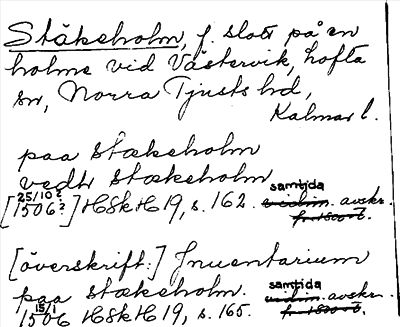 Stäkeholm, f. slott på en
holme vid Västervik, Lofta
sn, Norra Tjusts hd,
Kalmar l.
paa stækeholm
vedtr stækeholm
[25/10? 1506?] HSkH 19, s. 162. samtida avskr.
[överskrift:] Inuentarium
paa stækeholm.
15/1 1506 HSkH 19, s. 165. samtida avskr.